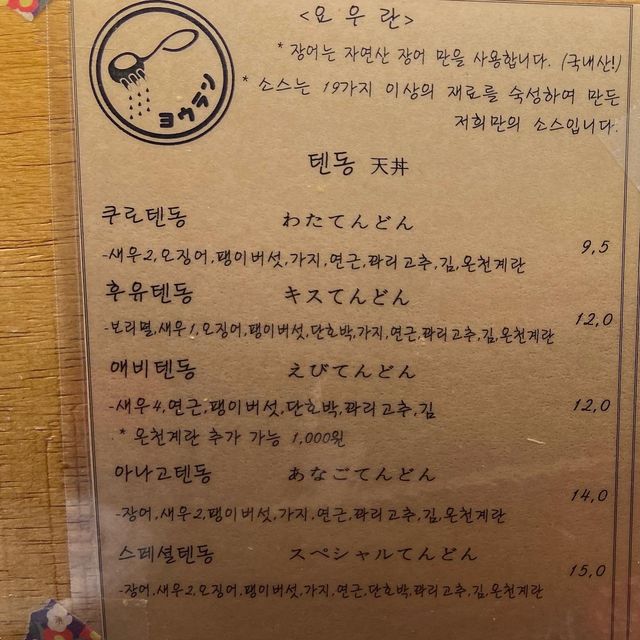 <요우란>
* 장어는 자연산 장어 만을 사용합니다. (국내산!)
* 소스는 19가지 이상의 재료를 숙성하여 만든
저희만의 소스입니다.
ヨウラン
텐동 天丼
쿠로텐동 わたてんどん
-새우2,오징어,팽이버섯,가지,연근,꽈리고추,김,온천계란 9,5
후유텐동 キスてんどん
-보리멸,새우1,오징어,팽이버섯,단호박,가지,연근,꽈리고추,김,온천계란 12,0
애비텐동 えびてんどん
-새우4,연근,팽이버섯,단호박,꽈리고추,김 12,0
* 온천계란 추가 가능 1,000원
아나고텐동 あなごてんどん
-장어,새우2,팽이버섯,가지,연근,꽈리고추,김,온천계란 14,0
스페셜텐동 スペシャルてんどん
-장어,새우2,오징어,팽이버섯,가지,연근,단호박,꽈리고추,김,온천계란 15,0